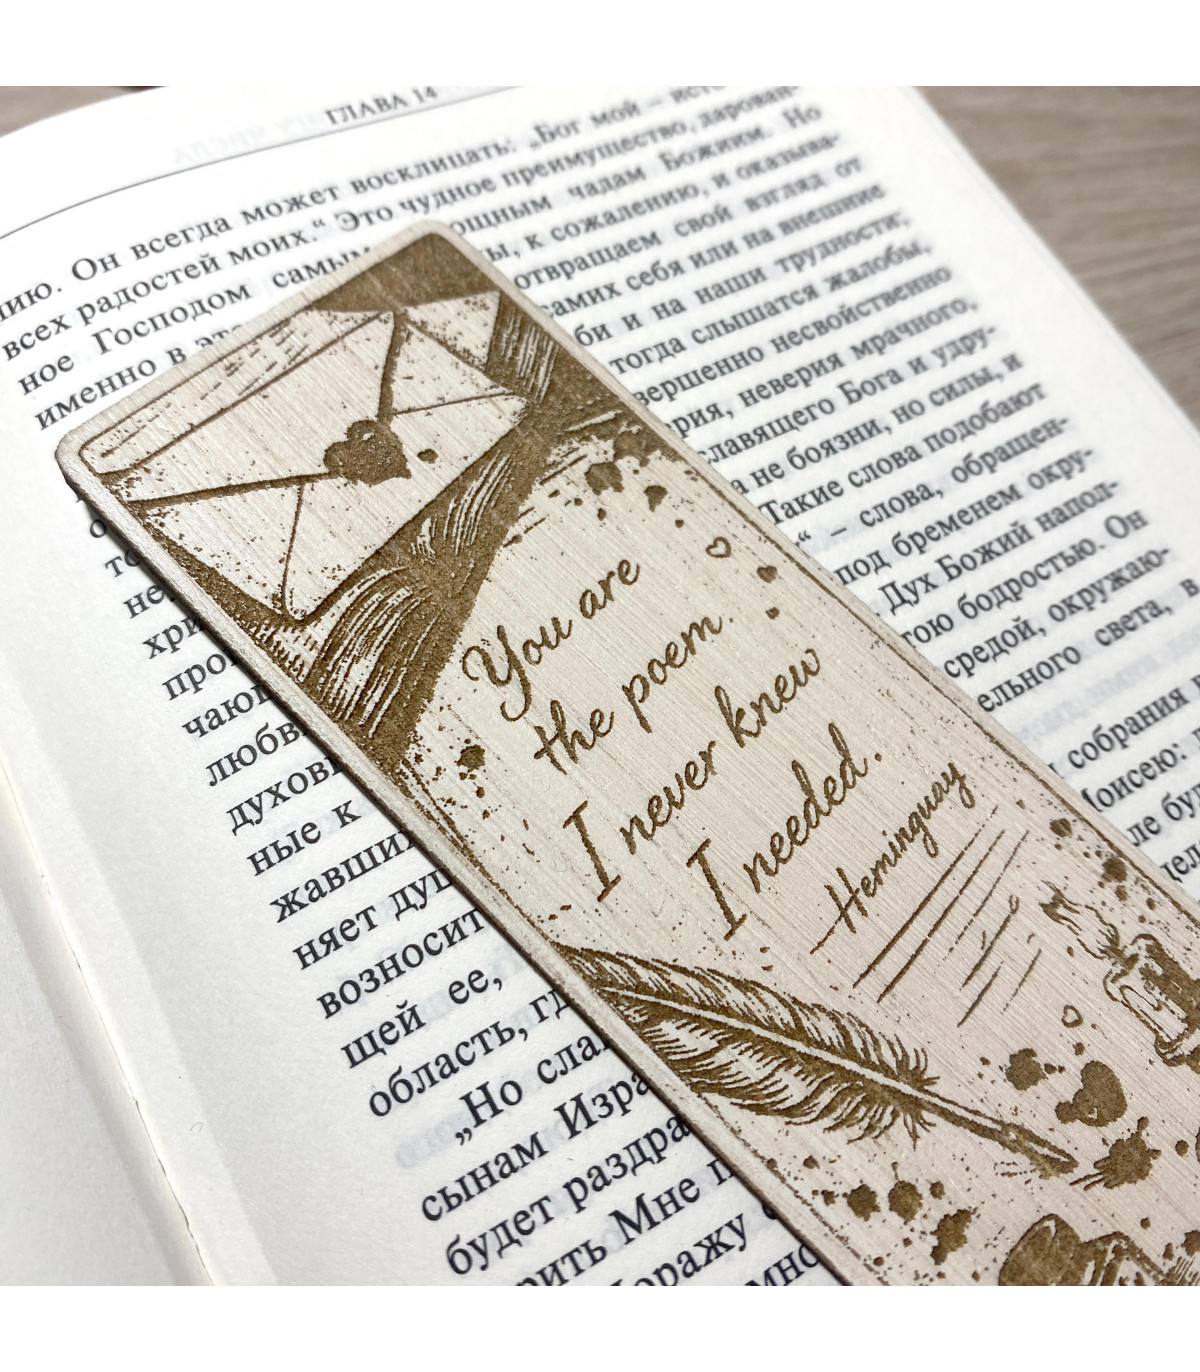 ГЛАВА 14
нию. Он всегда может восклицать: „Бог мой – исто
всех радостей моих.“ Это чудное преимущество, дарован-
ное Господом самым ощным чадам Божиим. Но
именно в эт ы, к сожалению, и оказыва-
отвращаем свой взгляд от
самих себя или на внешние
би и на наши трудности;
тогда слышатся жалобы,
вершенно несвойственно
рия, неверия мрачного,
славящего Бога и удру-
а не боязни, но силы, и
Такие слова подобают
“ – слова, обращен-
под бременем окру-
Дух Божий напол-
тою бодростью. Он
средой, окружаю-
ельного света, в
не
хри
про
чающ
любв
духовн
ные к
жавших
няет душ
возносит
щей ее,
область, гд
„Но сла
сынам Изра
будет раздра
рить Мне п
Поражу
собрания
Моисею:
You are
the poem.
I never knew
I needed.
-Heminguay